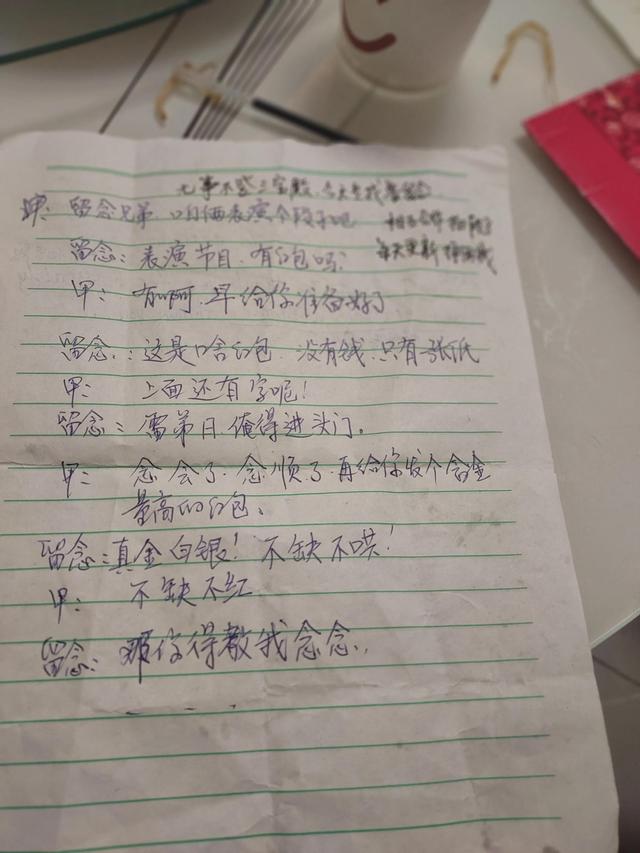 无事不登三宝殿.今天是我
甲: 留念兄弟.咱俩表演个段子吧
每天更新
留念: 表演节目.有红包吗?
甲: 有啊.早给你准备好了
留念: 这是啥红包.没有钱.只有一张纸
甲: 上面还有字呢!
留念: 弟日俺得进头门.
甲: 念会了.念顺了.再给你发个含金
量高的红包.
留念: 真金白银! 不缺不哄!
甲: 不缺不红
留念: 那你得教我念念.